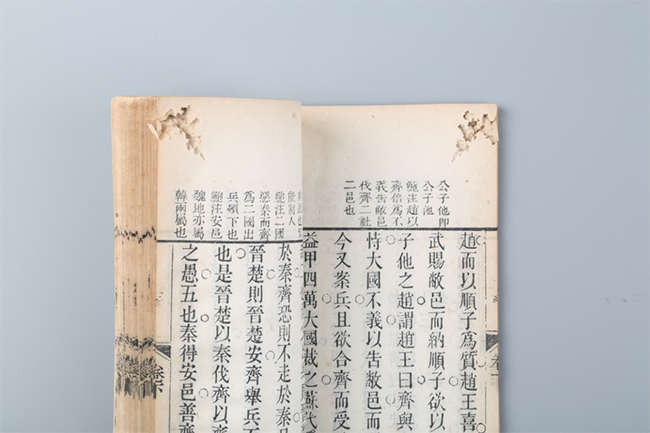 公子他卽
公子池
鮑注趙以
齊倍爲不
義告敝邑
伐齊二社
二邑也
趙而以順子爲質趙王喜
武賜敝邑而納順子欲以
子他之趙謂趙王曰齊與
恃大國不義以告敝邑而
今又案兵且欲合齊而受
益甲四萬大國裁之蘇代
能制人
鮑注二國
惡秦而齊
爲二國出
兵頓下也
鮑注安邑
魏地亦屬
韓兩屬也
於秦齊恐則不走於秦
晉楚則晉楚安齊舉兵
也是晉楚以秦伐齊以齊
之愚五也秦得安邑善齊
卷六